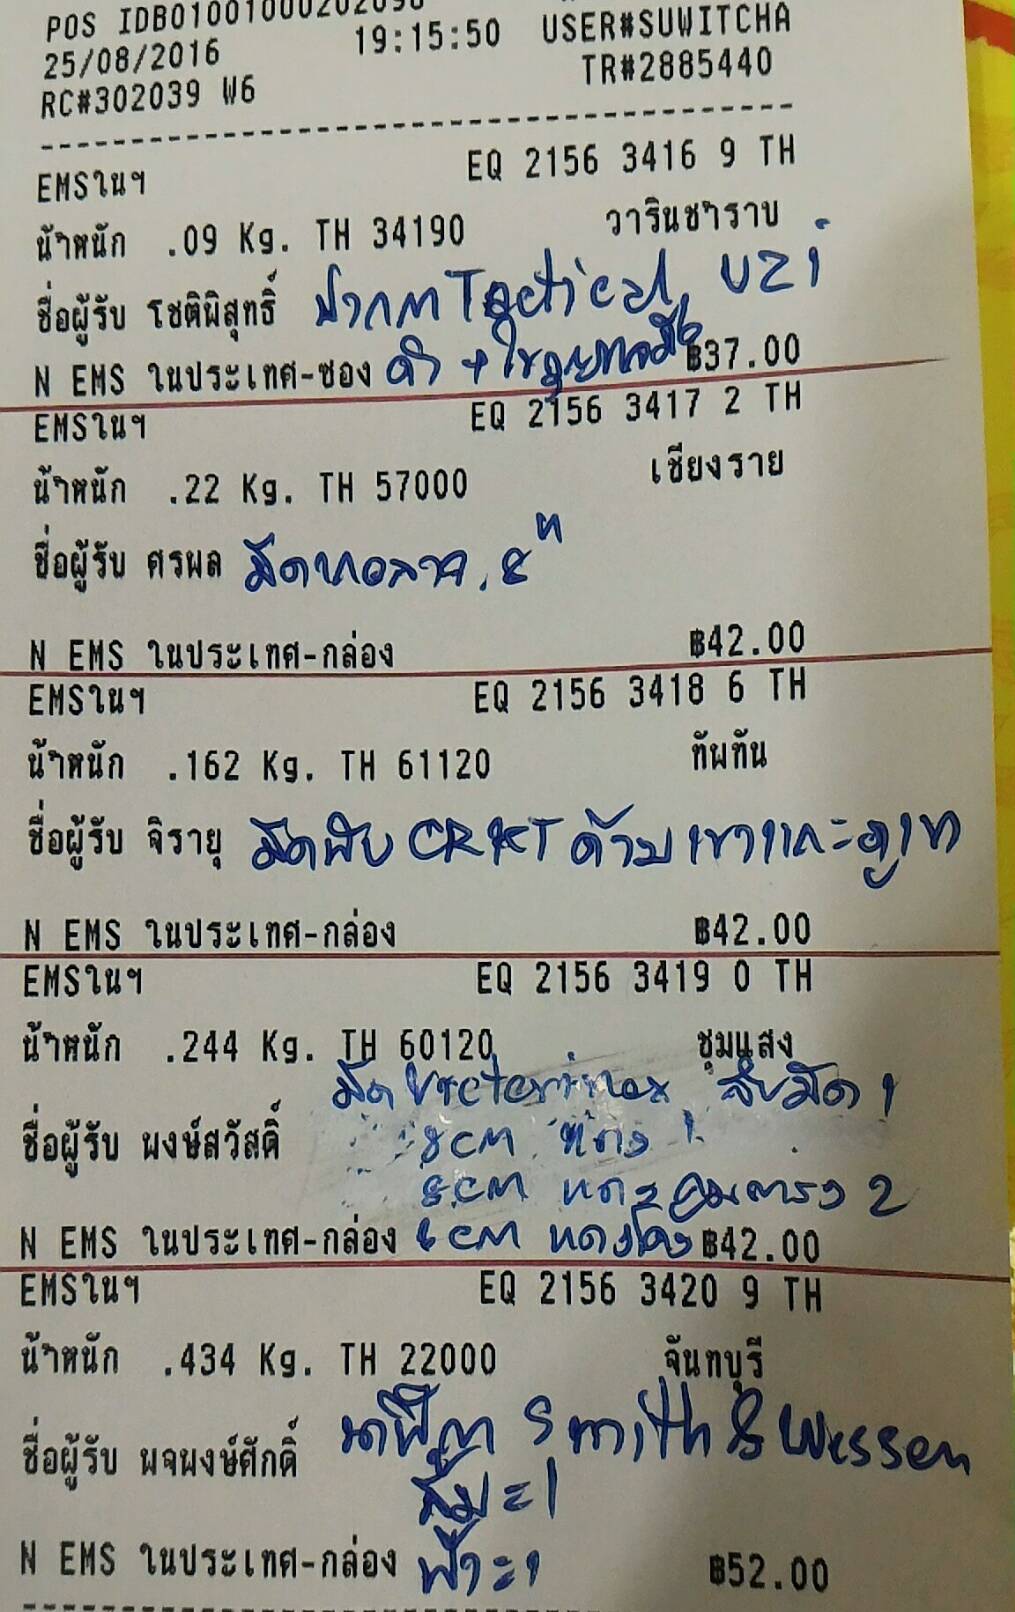 POS IDB01001000202098
25/08/2016 19:15:50 USER#SUWITCHA
RC#302039 W6 TR#2885440
EMSในฯ EQ 2156 3416 9 TH
น้ำหนัก .09 Kg. TH 34190 วารินชำราบ
ชื่อผู้รับ โชติพิสุทธิ์ Tactical UZI
N EMS ในประเทศ-ซอง ดำ + ฿37.00
EMSในฯ EQ 2156 3417 2 TH
น้ำหนัก .22 Kg. TH 57000 เชียงราย
ชื่อผู้รับ ศรผล มีด
N EMS ในประเทศ-กล่อง ฿42.00
EMSในฯ EQ 2156 3418 6 TH
น้ำหนัก .162 Kg. TH 61120 ทัพทัน
ชื่อผู้รับ จิรายุ มีดพับ CRKT ด้ามเขาแกะ
N EMS ในประเทศ-กล่อง ฿42.00
EMSในฯ EQ 2156 3419 0 TH
น้ำหนัก .244 Kg. TH 60120 ชุมแสง
มีด Victorinox 1
ชื่อผู้รับ ผงษ์สวัสดิ์ 8cm 1
8cm 2
N EMS ในประเทศ-กล่อง 8cm แดงโค้ง ฿42.00
EMSในฯ EQ 2156 3420 9 TH
น้ำหนัก .434 Kg. TH 22000 จันทบุรี
ชื่อผู้รับ ผจผงษ์ศักดิ์ Smith & Wessen
ส้ม = 1
N EMS ในประเทศ-กล่อง ฟ้า = 1 ฿52.00